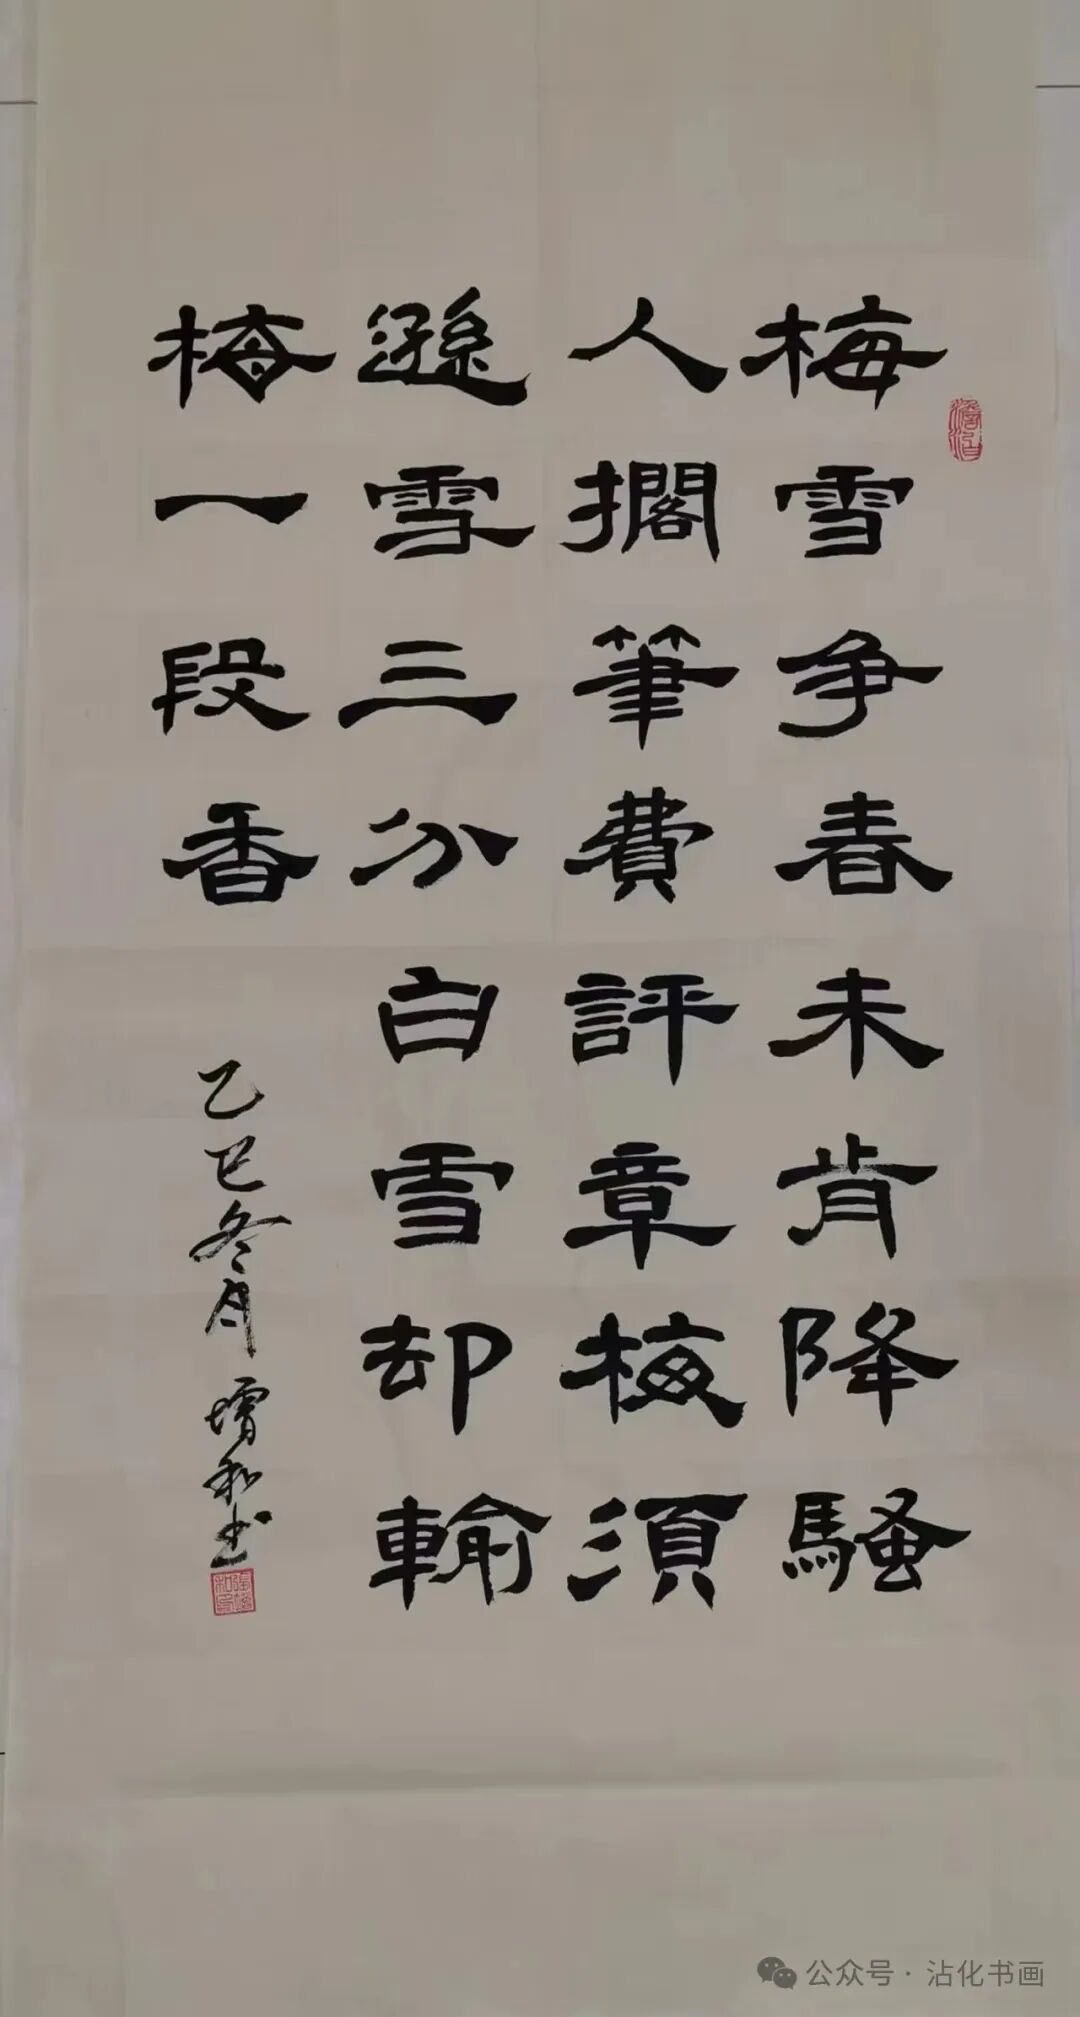 梅雪争春未肯降騷
人擱筆費評章梅須
遜雪三分白雪却輸
梅一段香
乙巳冬月 增和书
澹泊
公众号·沾化书画